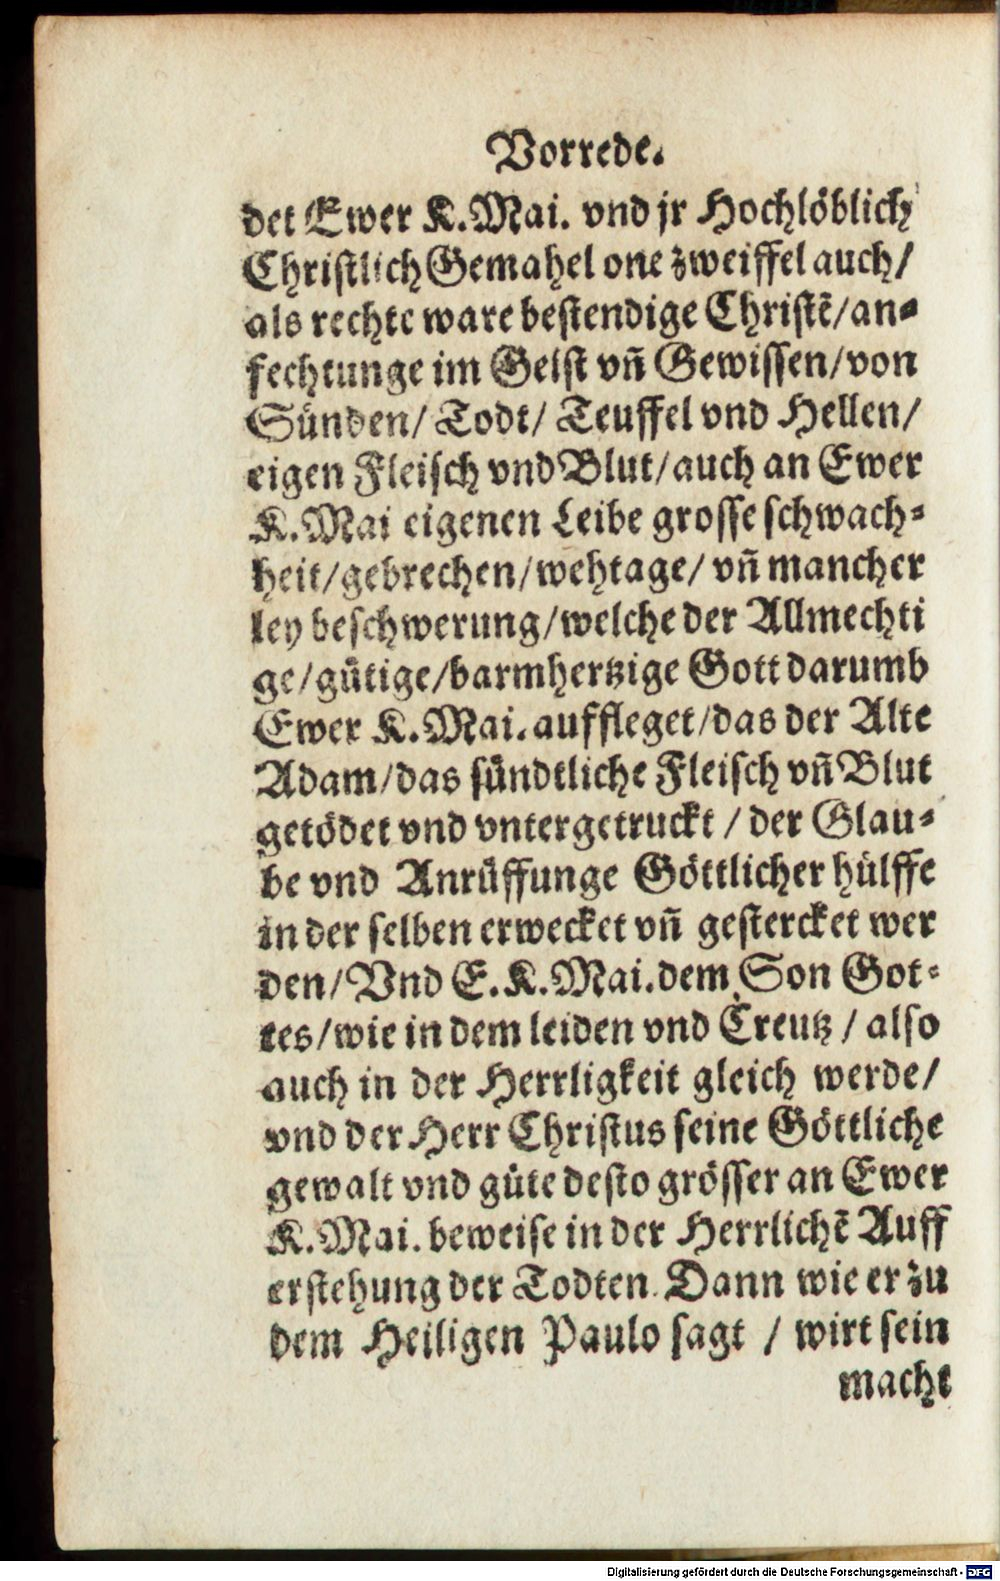 Vorrede.
det Ewer K. Mai. vnd jr Hochlöblich
Christlich Gemahel one zweiffel auch/
als rechte ware bestendige Christē/an-
fechtunge im Geist vn̄ Gewissen/von
Sünden/ Todt/ Teuffel vnd Hellen/
eigen Fleisch vnd Blut/auch an Ewer
K. Mai eigenen Leibe grosse schwach-
heit/gebrechen/wehtage/ vn̄ mancher
ley beschwerung/welche der Allmechti
ge/gütige/barmhertzige Gott darumb
Ewer K. Mai. auffleget/das der Alte
Adam/das sündtliche Fleisch vn̄ Blut
getödet vnd vntergetruckt / der Glau-
be vnd Anrüffunge Göttlicher hülffe
in der selben erwecket vn̄ gestercket wer
den/ Vnd E. K. Mai. dem Son Got-
tes/wie in dem leiden vnd Creutz / also
auch in der Herrligkeit gleich werde/
vnd der Herr Christus seine Göttliche
gewalt vnd güte desto grösser an Ewer
K. Mai. beweise in der Herrlichē Auff
erstehung der Todten. Dann wie er zu
dem Heiligen Paulo sagt / wirt sein
macht
Digitalisierung gefördert durch die Deutsche Forschungsgemeinschaft - DFG